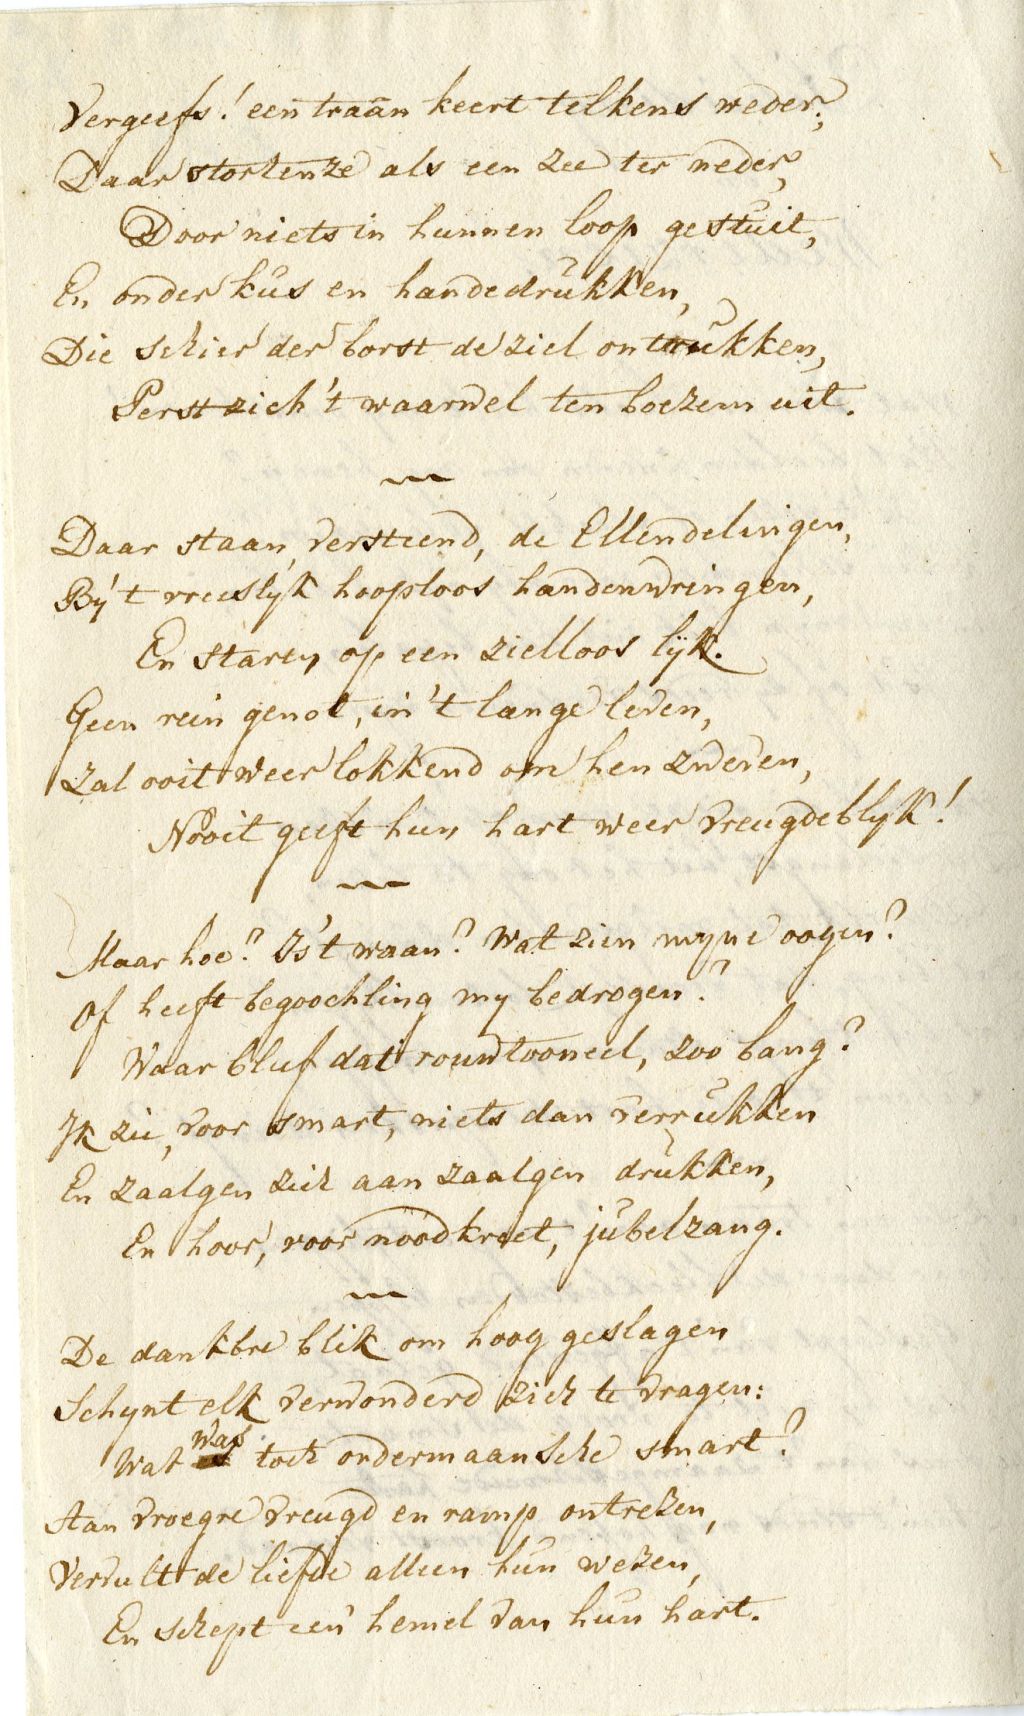 Vergeefs! een traan keert telkens weder;
Daar storten ze als een zee ter neder,
Door niets in hunnen loop gestuit,
En onder kus en handedrukken,
Die schier der borst de ziel ontrukken,
Perst zich 't vaarwel ten boezem uit.
Daar staan, versteend, de Ellendelingen,
By 't vreeslyk hooploos handenwringen,
En staren op een zielloos lyk.
Geen rein genot, in 't lange leven,
Zal ooit weer lokkend om hen zweven,
Nooit geeft hun hart weer vreugdeblyk!
Maar hoe? Is 't waan? Wat zien myne oogen?
Of heeft begoochling my bedrogen?
Waar bleef dat rouwtooneel, zoo bang?
Ik zie, voor smart, niets dan verrukken
En zaalgen zich aan zaalgen drukken,
En hoor, voor noodkreet, jubelzang.
De dankbre blik om hoog geslagen
Schynt elk verwonderd zich te vragen:
Wat was toch ondermaansche smart?
Aan vroegre vreugd en ramp ontrezen,
Vervult de liefde alleen hun wezen,
En schept een' hemel van hun hart.